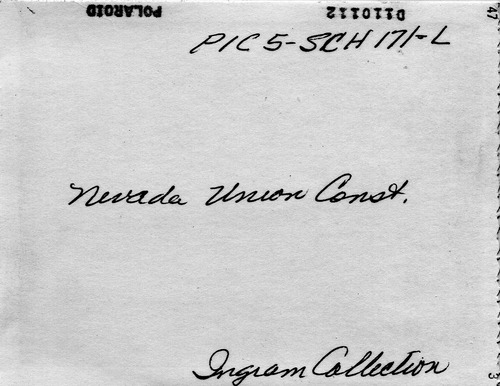 POLAROID D110112
PIC 5-SCH 171-L
47
Nevada Union Const.
Ingram Collection
3